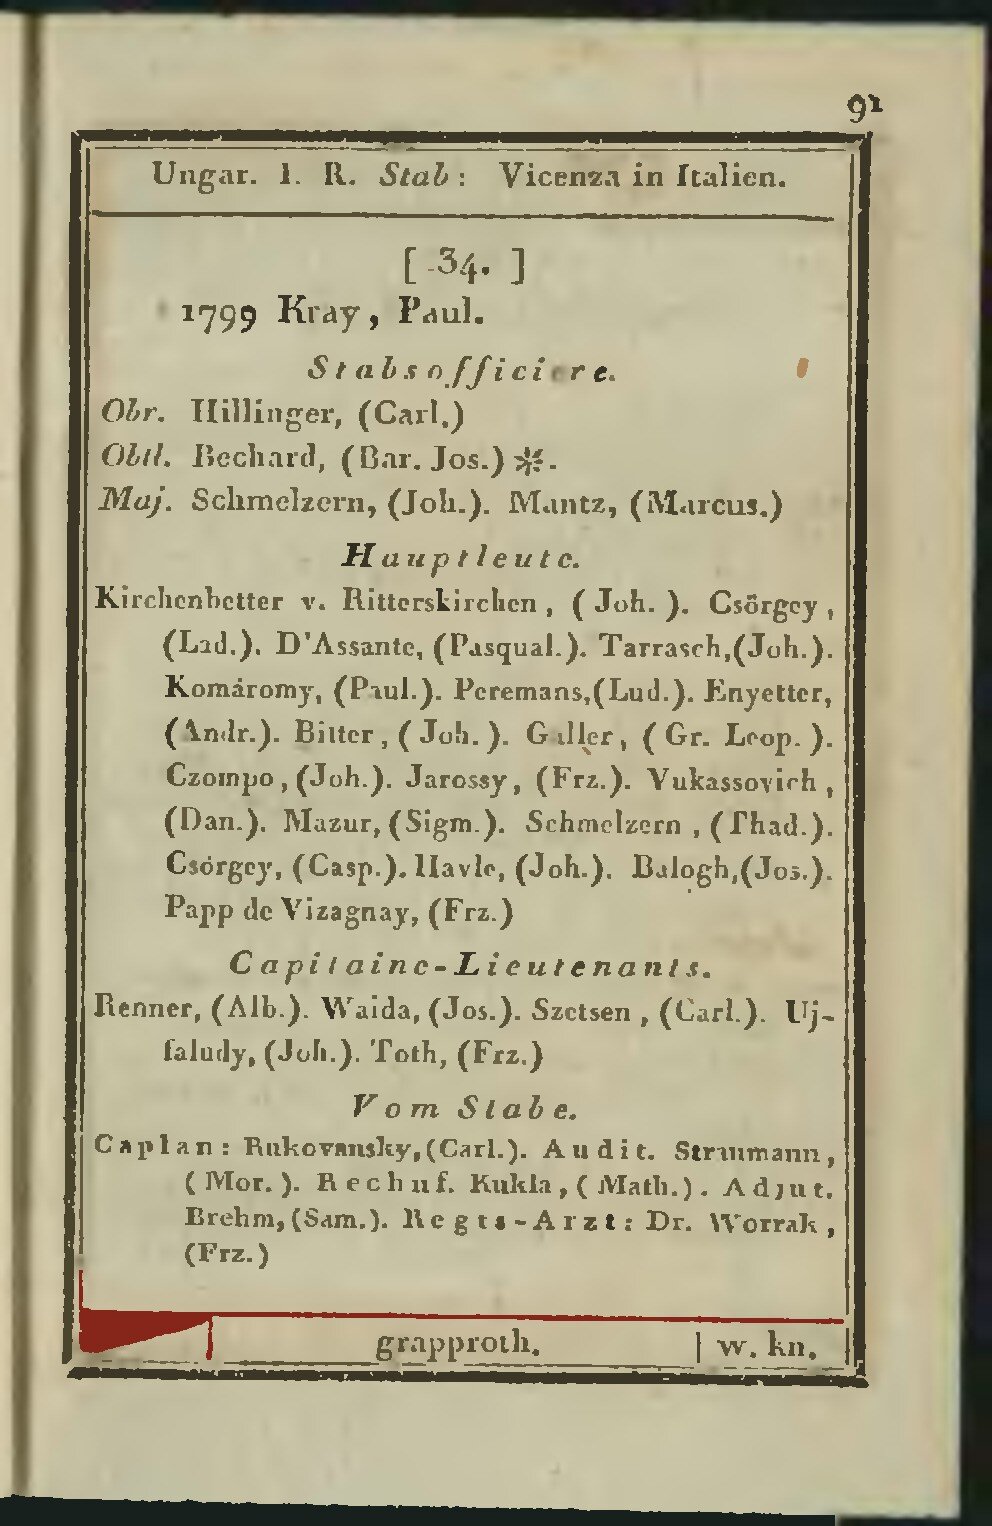 91
Ungar. I. R. Stab: Vicenza in Italien.
[ 34. ]
1799 Kray, Paul.
Stabsofficiere.
Obr. Hillinger, (Carl.)
Obtl. Bechard, (Bar. Jos.) ※.
Maj. Schmelzern, (Joh.). Mantz, (Marcus.)
Hauptleute.
Kirchenbetter v. Ritterskirchen, (Joh.). Csörgey,
(Lad.). D'Assante, (Pasqual.). Tarrasch,(Joh.).
Komáromy, (Paul.). Peremans,(Lud.). Enyetter,
(Andr.). Bitter, (Joh.). Galler, (Gr. Leop.).
Czompo, (Joh.). Jarossy, (Frz.). Vukassovich,
(Dan.). Mazur, (Sigm.). Schmelzern, (Thad.).
Csörgey, (Casp.). Havle, (Joh.). Balogh,(Jos.).
Papp de Vizagnay, (Frz.)
Capitaine-Lieutenants.
Renner, (Alb.). Waida, (Jos.). Szetsen, (Carl.). Uj-
faludy, (Joh.). Toth, (Frz.)
Vom Stabe.
Caplan: Rukovansky,(Carl.). Audit. Straumann,
(Mor.). Rechnf. Kukla, (Math.). Adjut.
Brehm,(Sam.). Regts-Arzt: Dr. Worrak,
(Frz.)
grapproth. | w. kn.